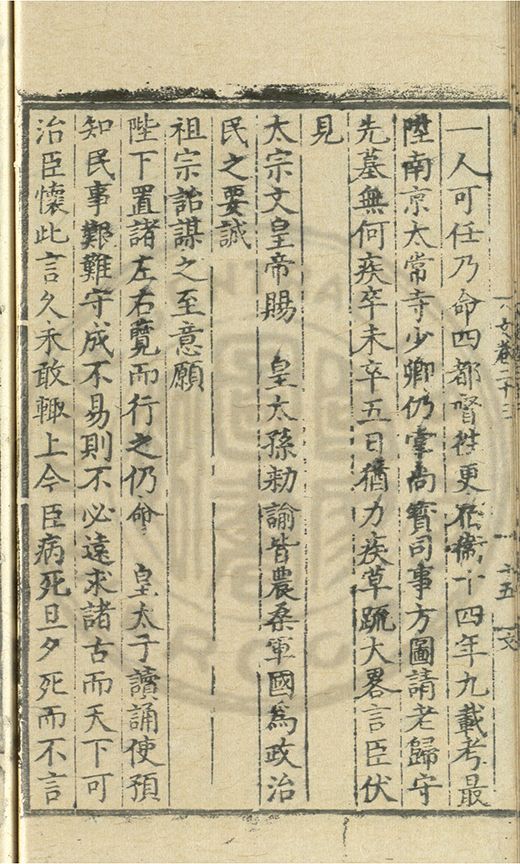 一人可任乃命四都督往更衛十四年九載考最
陞南京太常寺少卿仍掌尚寶司事方圖請老歸守
先墓無何疾卒未卒五日猶力疾草疏大畧言臣伏
見
太宗文皇帝賜　皇太孫勑諭皆農桑軍國為政治
民之要誠
祖宗詒謀之至意願
陛下置諸左右覽而行之仍命　皇太子讀誦使預
知民事艱難守成不易則不必遠求諸古而天下可
治臣懷此言久未敢輙上今臣病死旦夕死而不言